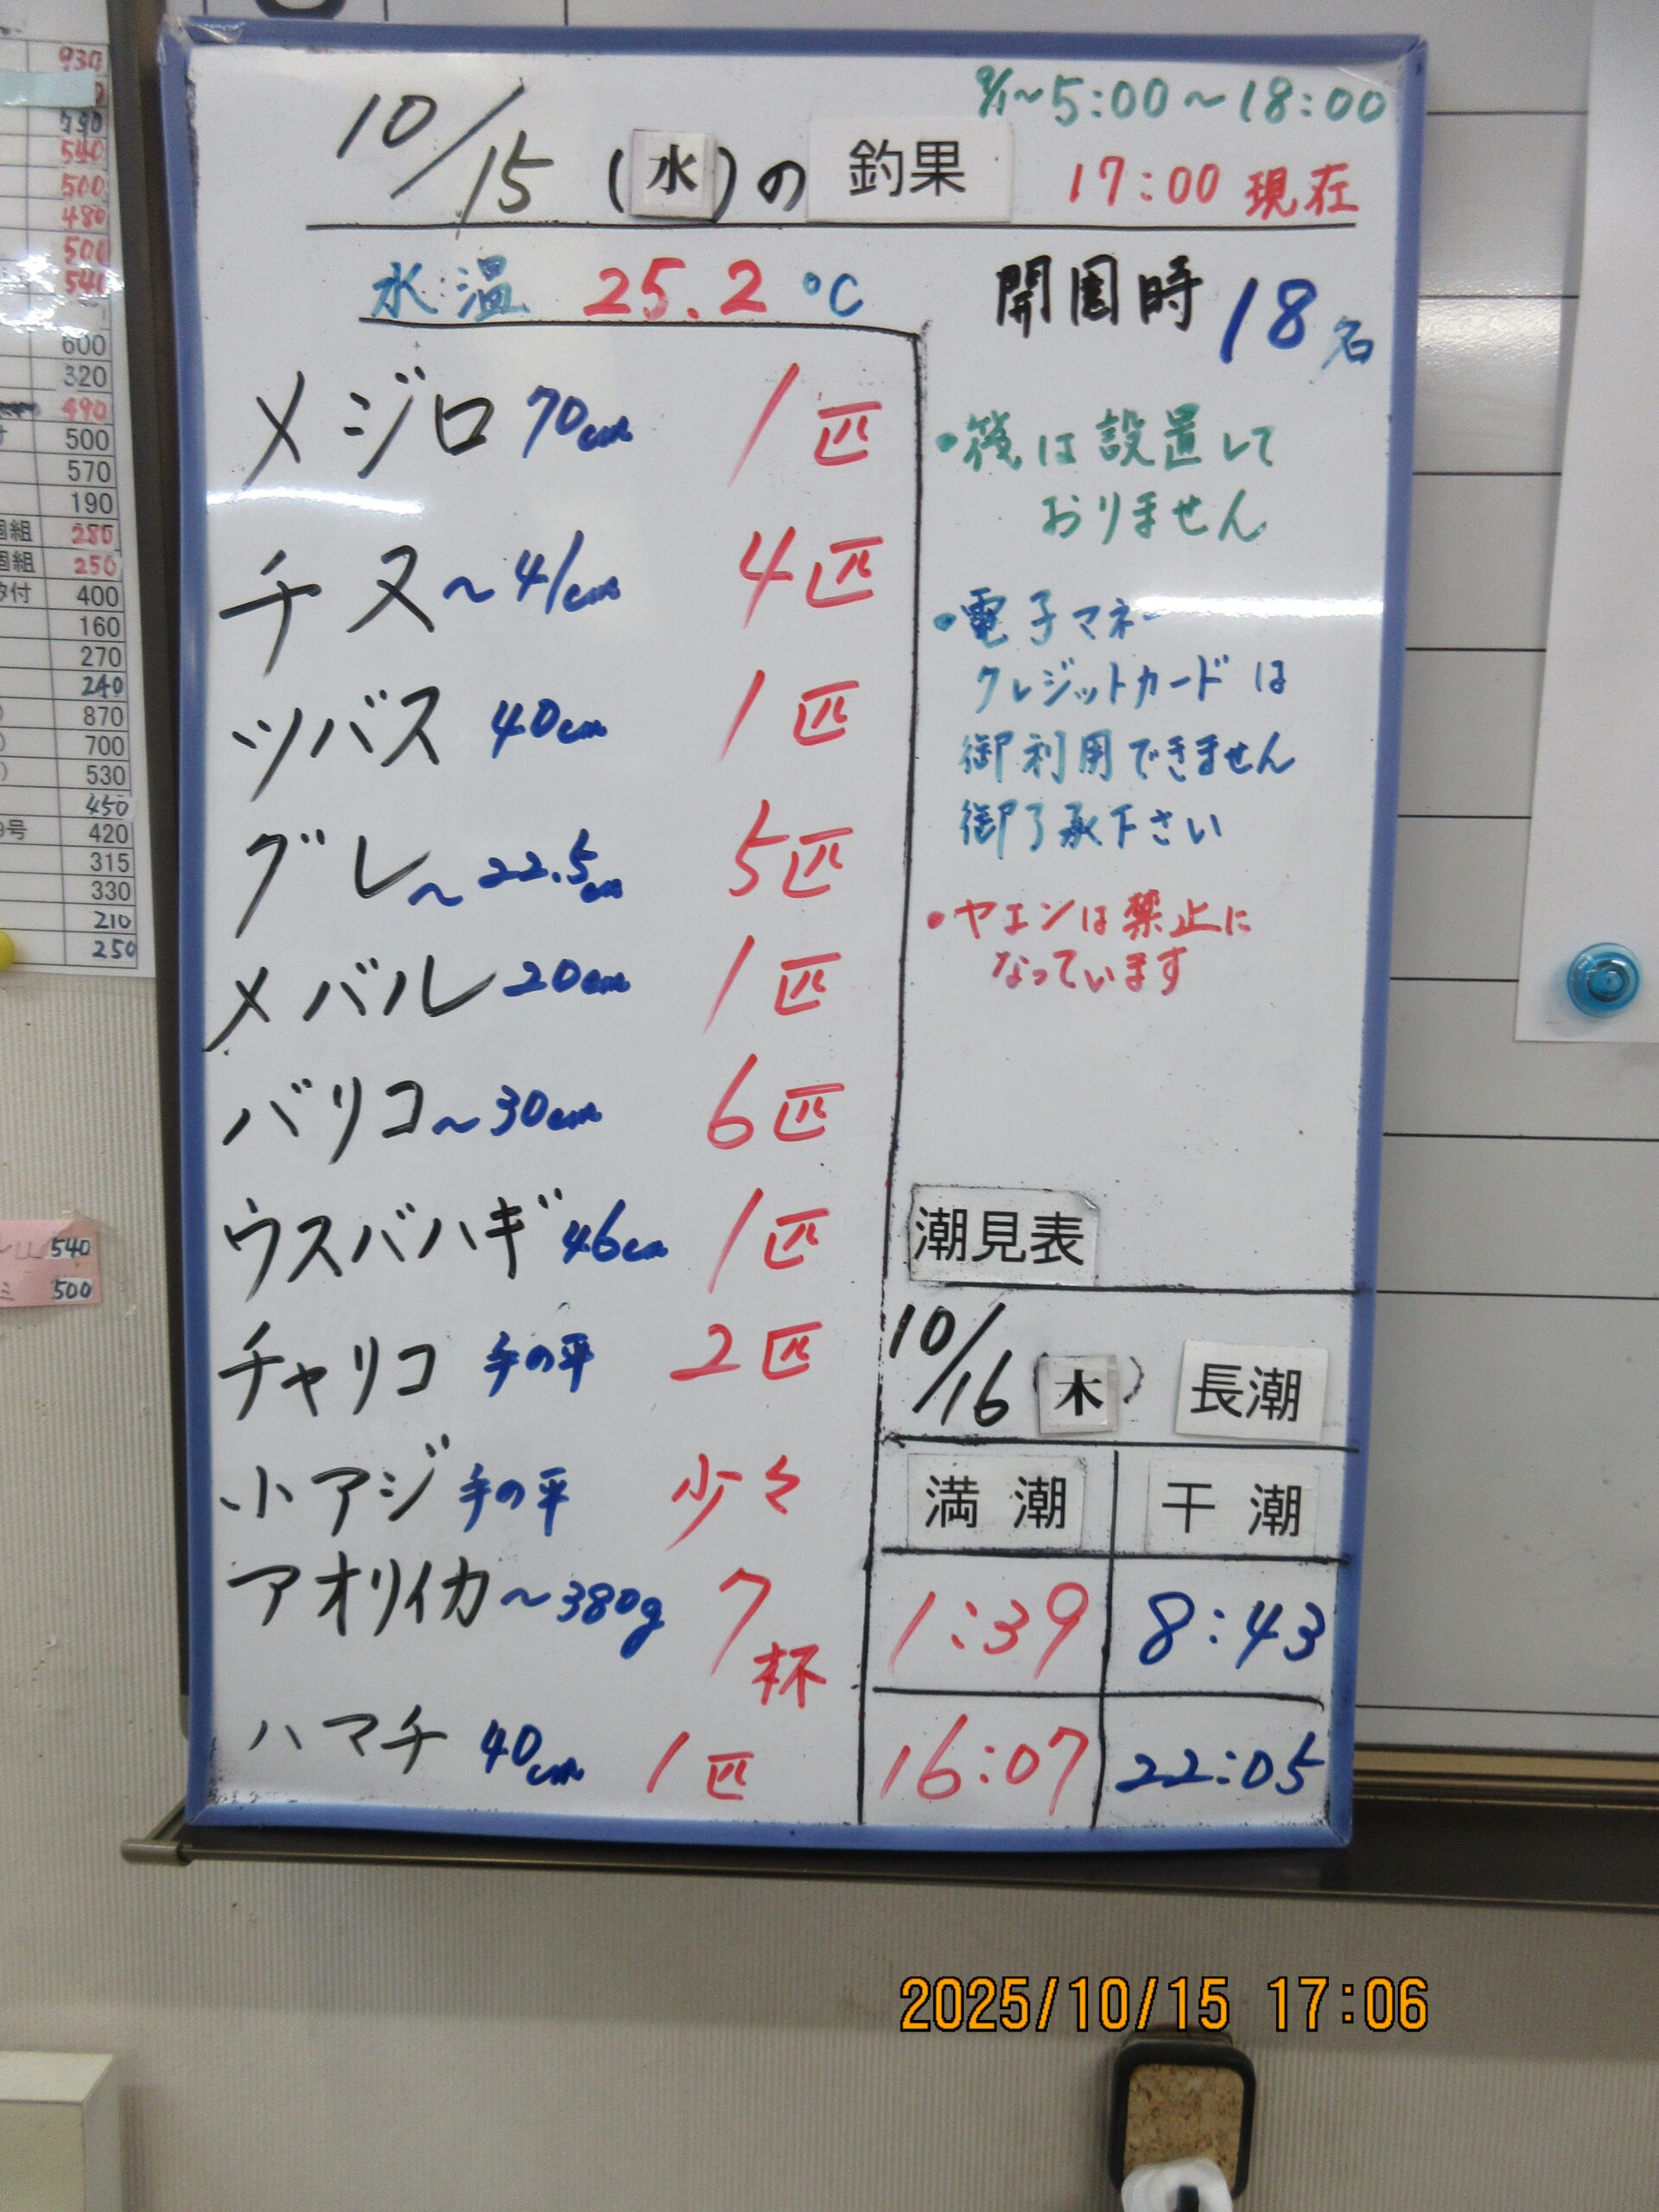 9/1〜5:00〜18:00
10/15(水)の釣果 17:00 現在
水温 25.2 ℃
開園時 18名
メジロ 70cm 1匹
チヌ〜41cm 4匹
ツバス 40cm 1匹
グレ〜22.5cm 5匹
メバル 20cm 1匹
バリコ〜30cm 6匹
ウスバハギ 46cm 1匹
チャリコ 手の平 2匹
小アジ 手の平 少々
アオリイカ〜380g 7杯
ハマチ 40cm 1匹
・筏は設置して
おりません
・電子マネー
クレジットカードは
御利用できません
御了承下さい
・ヤエンは禁止に
なっています
潮見表
10/16(木) 長潮
満潮 干潮
1:39 8:43
16:07 22:05
930
540
500
480
500
540
600
320
490
500
570
190
個組 280
個組 250
付 400
160
270
240
870
700
530
450
号 420
315
330
210
250
540
ミ 500
2025/10/15 17:06